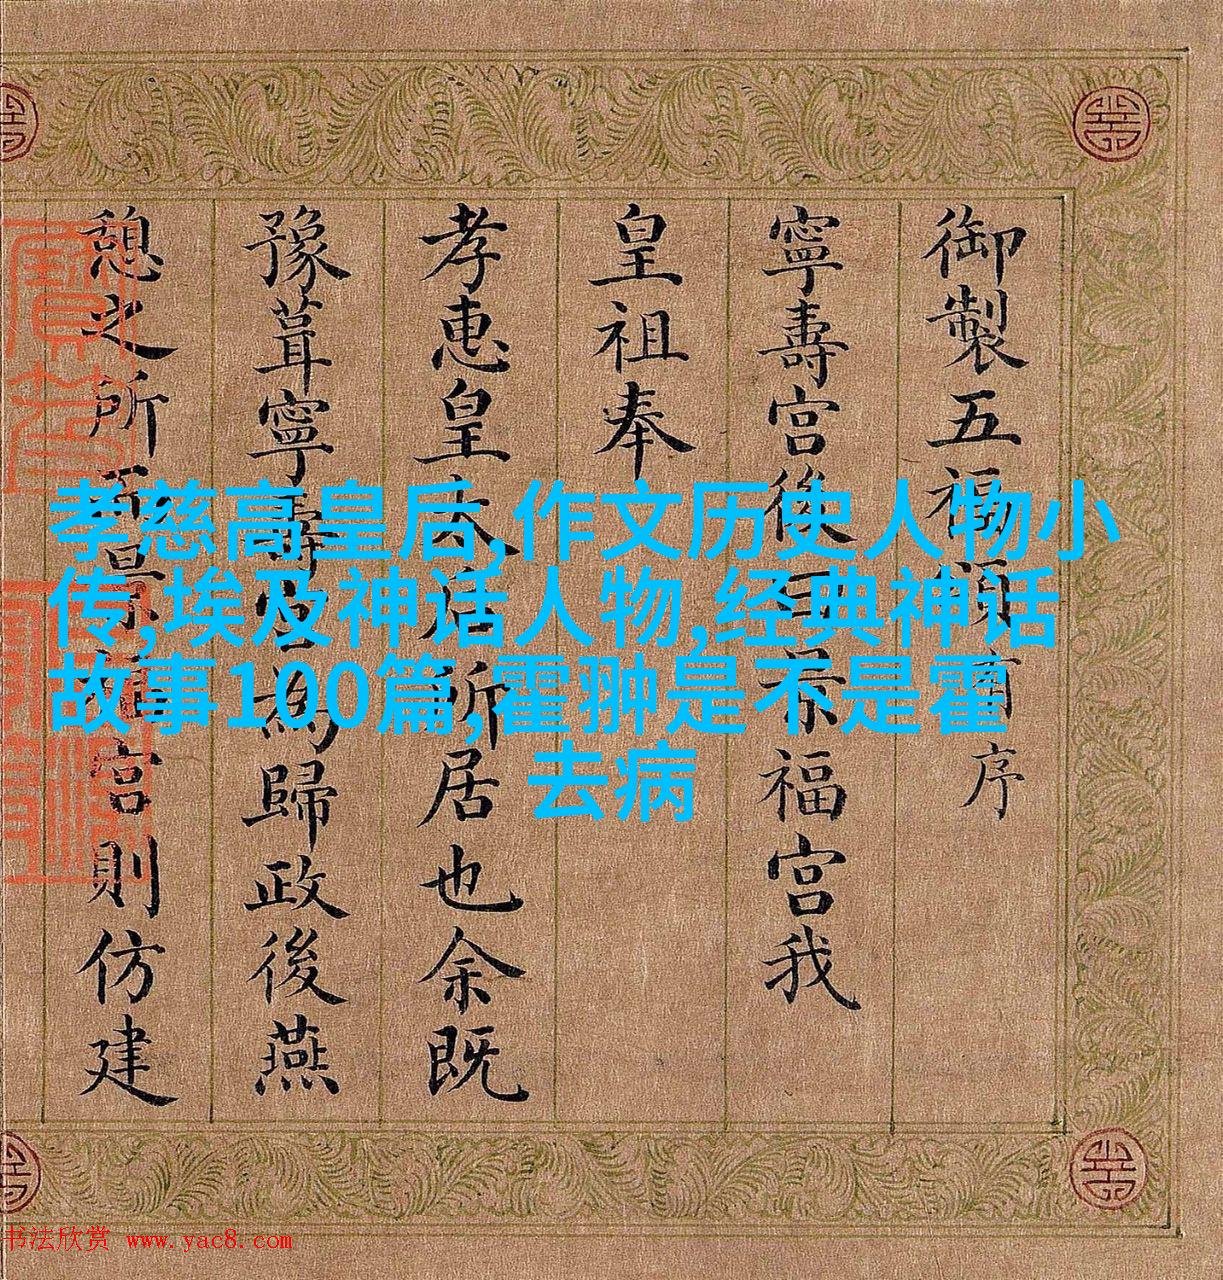 御製五福頌有序
寧壽宮後曰景福宮我
皇祖奉
孝惠皇太后所居也余既
豫葺寧壽宮為歸政後燕
憩之所而景福宮則仿建
孝慈高皇后,作文历史人物小
传,埃及神话人物,经典神话
故事100篇,霍翀是不是霍
去病
书法欣赏 www.yac8.com